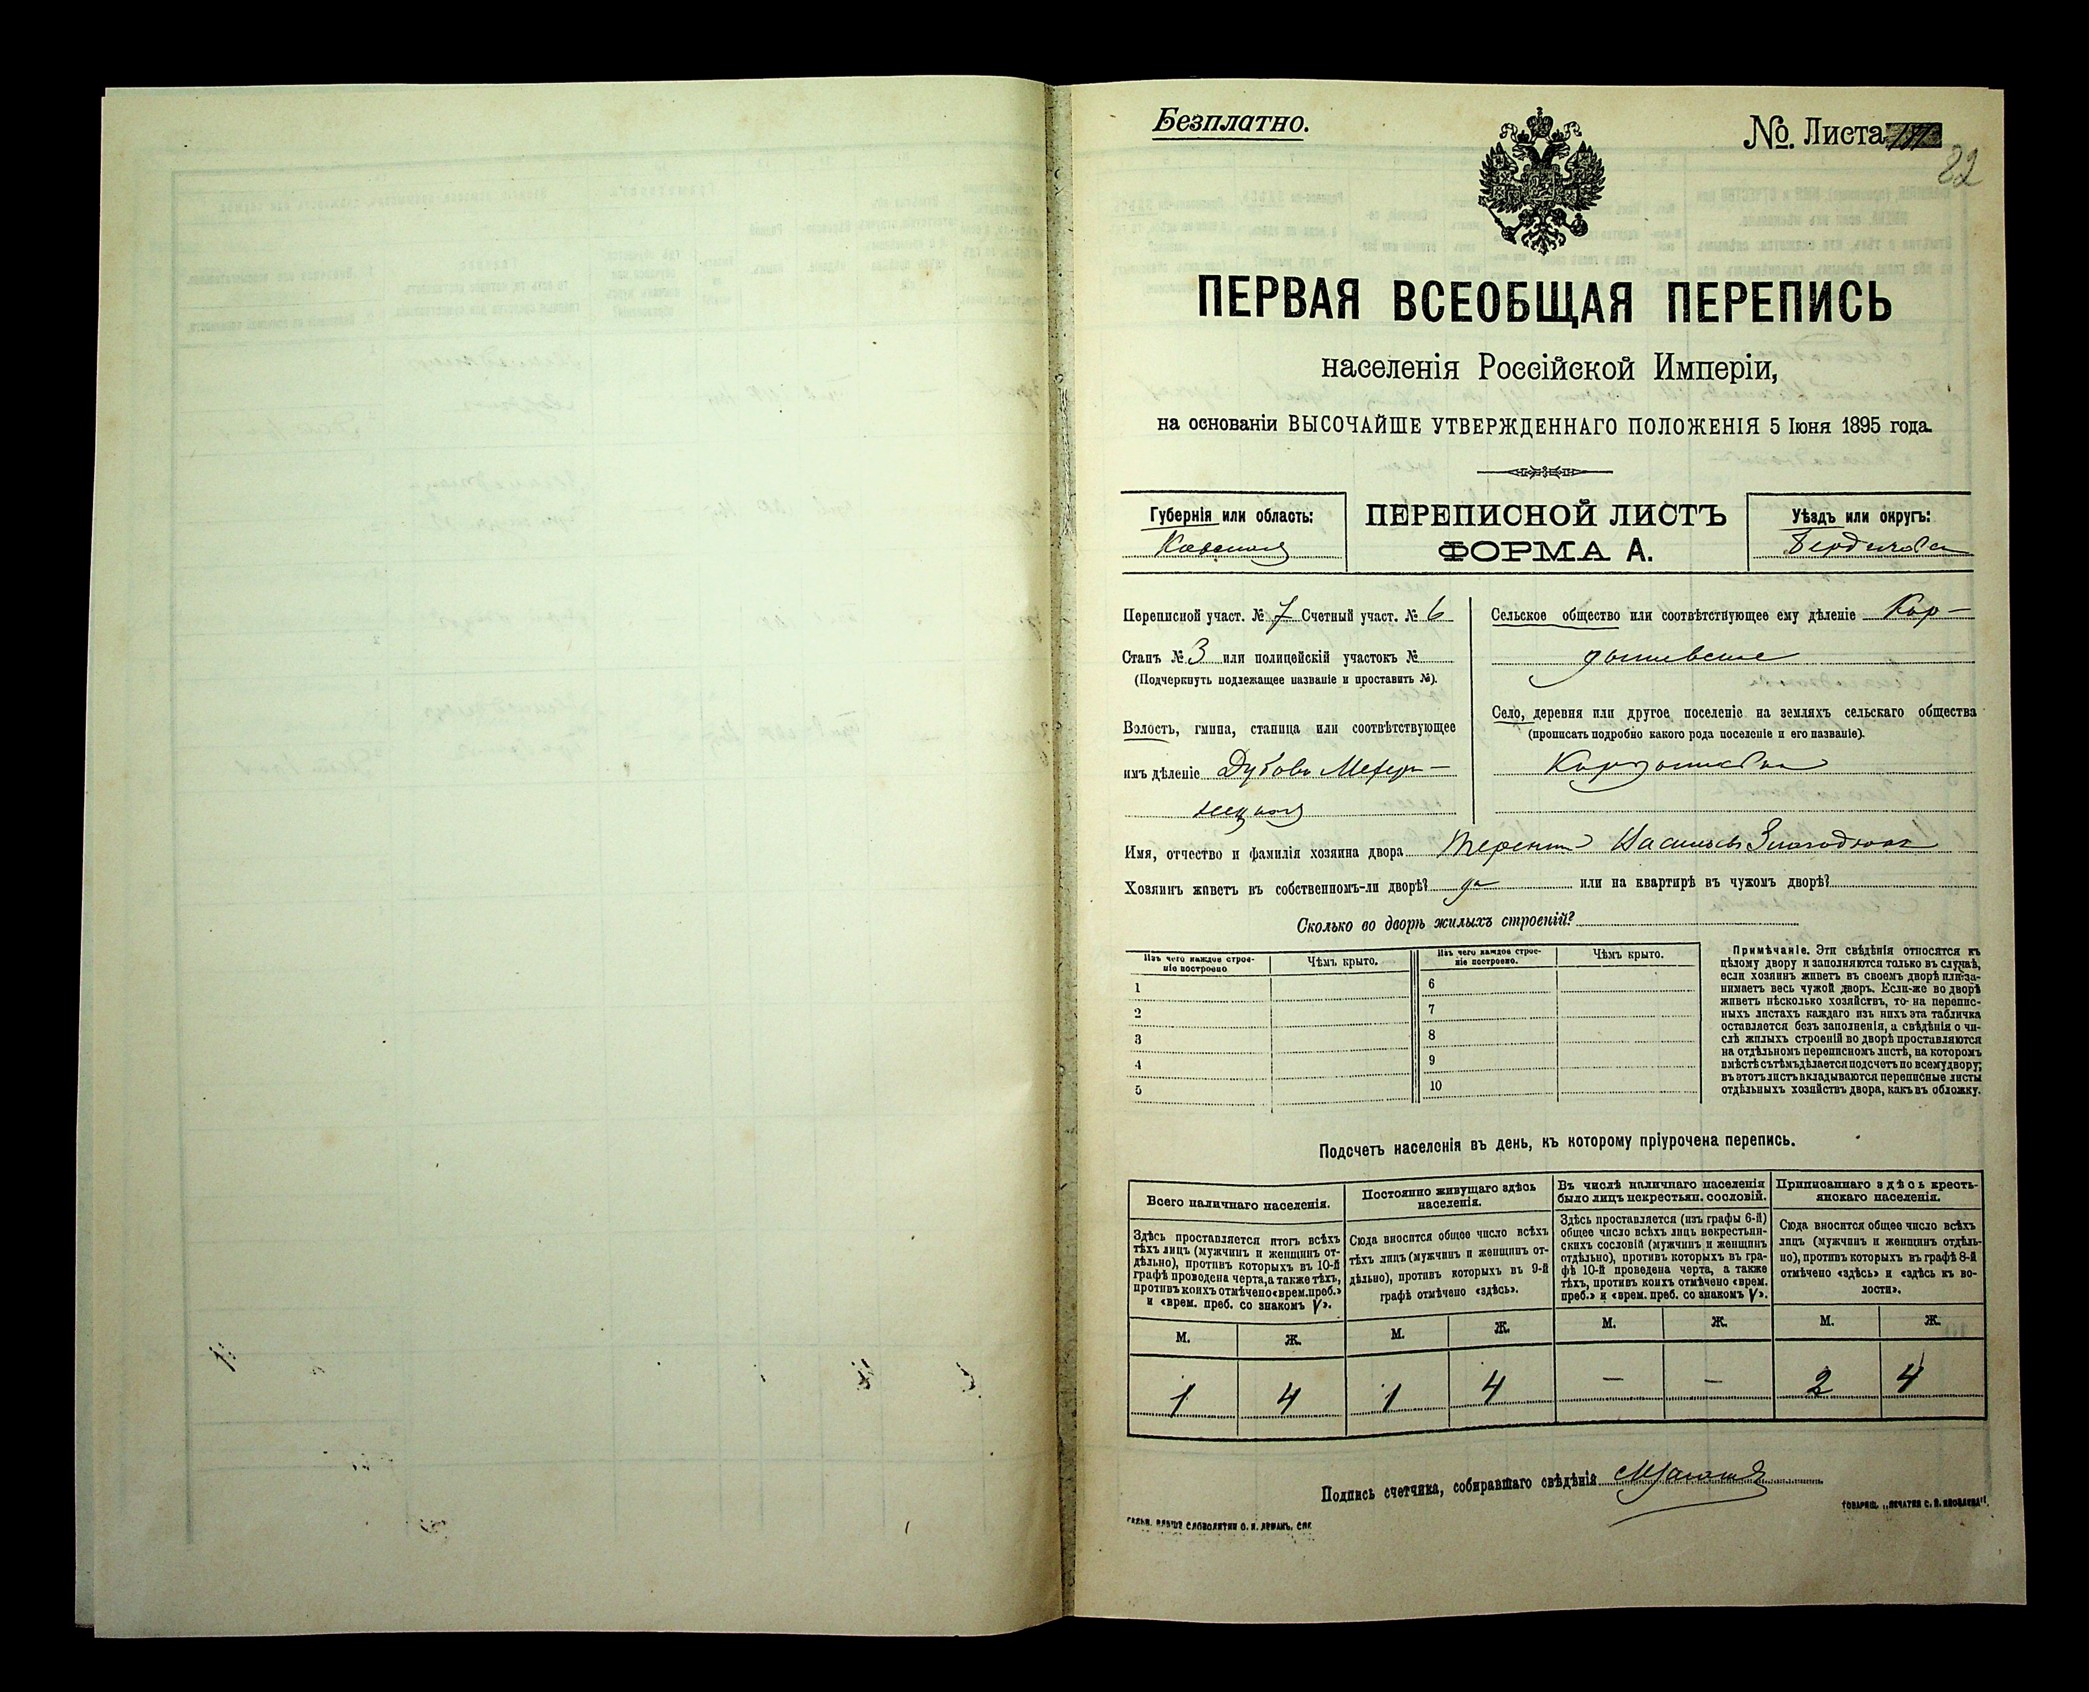 Безплатно.
№. Листа
22
ПЕРВАЯ ВСЕОБЩАЯ ПЕРЕПИСЬ
населенія Россійской Имперіи,
на основаніи ВЫСОЧАЙШЕ УТВЕРЖДЕННАГО ПОЛОЖЕНІЯ 5 Іюня 1895 года.
Губернія или область:
Кіевская
ПЕРЕПИСНОЙ ЛИСТЪ
ФОРМА А.
Уѣздъ или округъ:
Бердичевск
Переписной участ. № 7 Счетный участ. № 6
Станъ № 3 или полицейскій участокъ №
(Подчеркнуть подлежащее названіе и проставить №).
Волость, гмина, станица или соотвѣтствующее
имъ дѣленіе Дубово Махари-
нецкая
Сельское общество или соотвѣтствующее ему дѣленіе Кор-
дышевское
Село, деревня или другое поселеніе на земляхъ сельскаго общества
(прописать подробно какого рода поселеніе и его названіе).
Кордышевка
Имя, отчество и фамилія хозяина двора Терентій Васильевъ
Хозяинъ живетъ въ собственномъ-ли дворѣ? да или на квартирѣ въ чужомъ дворѣ?
Сколько во дворѣ жилыхъ строеній?
Изъ чего каждое строе-
ніе построено
Чѣмъ крыто.
1
2
3
4
5
Изъ чего каждое строе-
ніе построено.
Чѣмъ крыто.
6
7
8
9
10
Примѣчаніе. Эти свѣдѣнія относятся къ
цѣлому двору и заполняются только въ случаѣ,
если хозяинъ живетъ въ своемъ дворѣ или за-
нимаетъ весь чужой дворъ. Если-же во дворѣ
живетъ нѣсколько хозяйствъ, то на перепис-
ныхъ листахъ каждаго изъ нихъ эта табличка
оставляется безъ заполненія, а свѣдѣнія о чи-
слѣ жилыхъ строеній во дворѣ проставляются
на отдѣльномъ переписномъ листѣ, на которомъ
вмѣстѣ съ тѣмъ дѣлается подсчетъ по всему двору;
въ этотъ листъ вкладываются переписные листы
отдѣльныхъ хозяйствъ двора, какъ въ обложку.
Подсчетъ населенія въ день, къ которому пріурочена перепись.
Всего наличнаго населенія.
Здѣсь проставляется итогъ всѣхъ
тѣхъ лицъ (мужчинъ и женщинъ от-
дѣльно), противъ которыхъ въ 10-й
графѣ проведена черта, а также тѣхъ,
противъ коихъ отмѣчено «врем. преб.»
и «врем. преб. со знакомъ V».
М.
Ж.
1
4
Постоянно живущаго здѣсь
населенія.
Сюда вносится общее число всѣхъ
тѣхъ лицъ (мужчинъ и женщинъ от-
дѣльно), противъ которыхъ въ 9-й
графѣ отмѣчено «здѣсь».
М.
Ж.
1
4
Въ числѣ наличнаго населенія
было лицъ некрестьян. сословій.
Здѣсь проставляется (изъ графы 6-й)
общее число всѣхъ лицъ некрестьян-
скихъ сословій (мужчинъ и женщинъ
отдѣльно), противъ которыхъ въ гра-
фѣ 10-й проведена черта, а также
тѣхъ, противъ коихъ отмѣчено «врем.
преб.» и «врем. преб. со знакомъ V».
М.
Ж.
—
—
Приписаннаго здѣсь кресть-
янскаго населенія.
Сюда вносится общее число всѣхъ
лицъ (мужчинъ и женщинъ отдѣль-
но), противъ которыхъ въ графѣ 8-й
отмѣчено «здѣсь» и «здѣсь къ во-
лости».
М.
Ж.
2
4
Подпись счетчика, собиравшаго свѣдѣнія
СЛОВОЛИТНИ О. И. ЛЕМАНЪ, СПб.
ТОВАРИЩ. „ПЕЧАТНЯ С. П. ЯКОВЛЕВА".